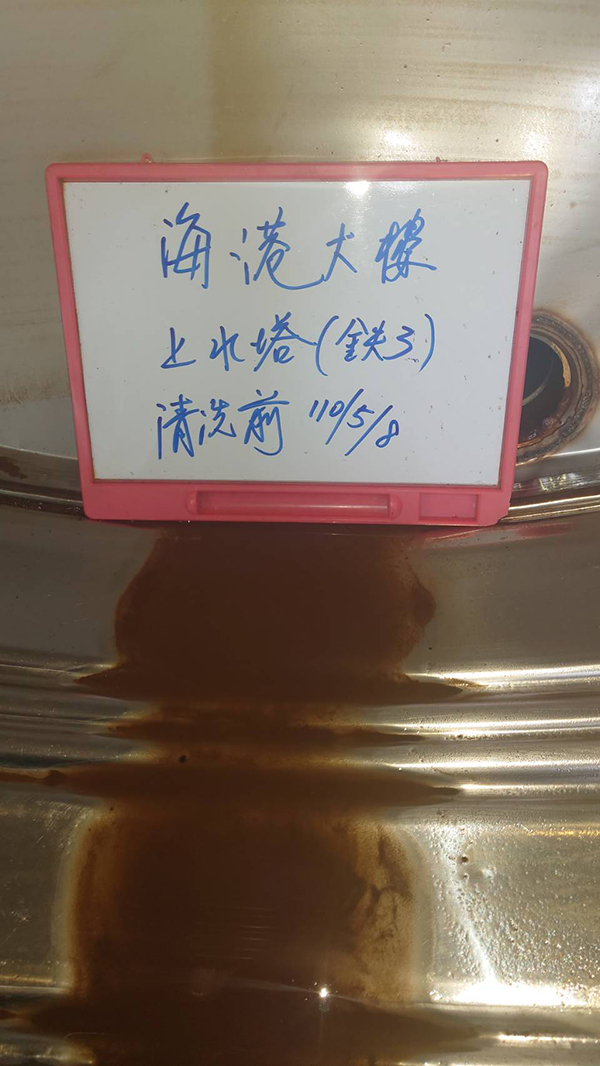 海港大樓
上水塔(鉄3)
清洗前 110/5/8